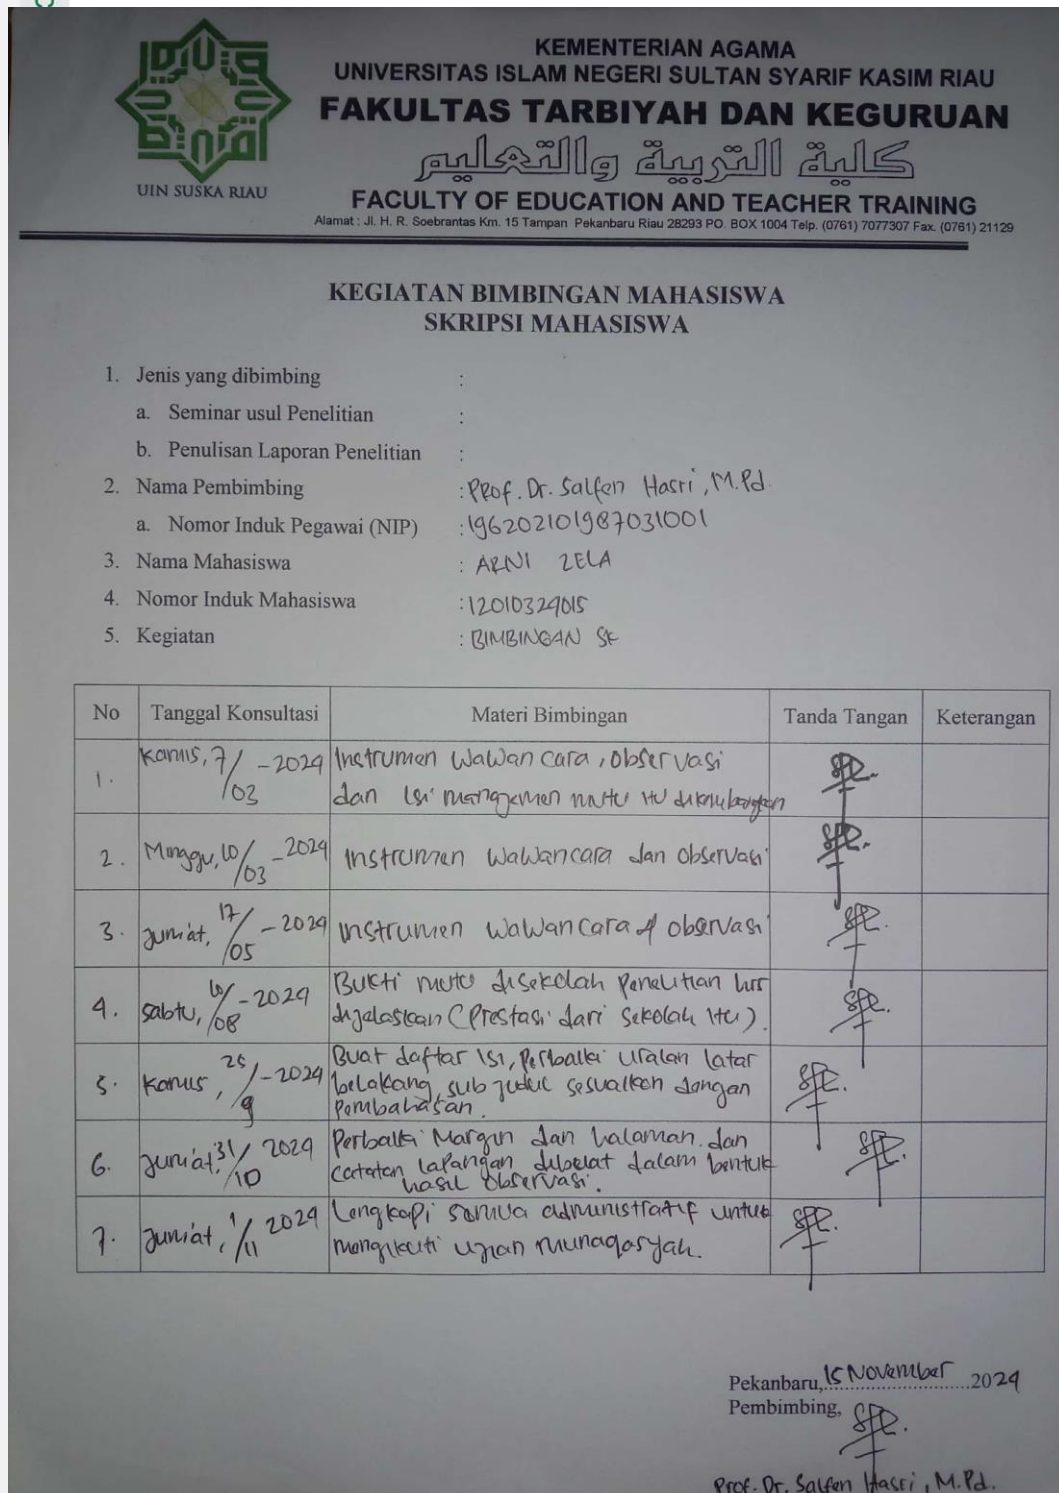 KEMENTERIAN AGAMA
UNIVERSITAS ISLAM NEGERI SULTAN SYARIF KASIM RIAU
FAKULTAS TARBIYAH DAN KEGURUAN
كلية التربية والتعليم
FACULTY OF EDUCATION AND TEACHER TRAINING
Alamat : Jl. H. R. Soebrantas Km. 15 Tampan Pekanbaru Riau 28293 PO. BOX 1004 Telp. (0761) 7077307 Fax. (0761) 21129
UIN SUSKA RIAU
KEGIATAN BIMBINGAN MAHASISWA
SKRIPSI MAHASISWA
1. Jenis yang dibimbing :
a. Seminar usul Penelitian :
b. Penulisan Laporan Penelitian :
2. Nama Pembimbing : PROf. Dr. Salfen Hasri, M.Pd.
a. Nomor Induk Pegawai (NIP) : 196202101987031001
3. Nama Mahasiswa : ARNI ZELA
4. Nomor Induk Mahasiswa : 12010324015
5. Kegiatan : BIMBINGAN SK
No Tanggal Konsultasi Materi Bimbingan Tanda Tangan Keterangan
1. Kamis, 7/03 - 2024 Instrumen Wawancara, Observasi
dan isi manajemen mutu itu
2. Minggu, 10/03 - 2024 Instrumen Wawancara dan Observasi
3. Jum'at, 17/05 - 2024 Instrumen Wawancara & observasi
4. Sabtu, 10/08 - 2024 Bukti mutu disekolah Penelitian hrs
dijelaskan (Prestasi dari sekolah itu).
5. Kamis, 25/9 - 2024 Buat daftar isi, Perbaiki uraian latar
belakang, sub judul sesuaikan dengan
Pembahasan.
6. Jum'at, 31/10 2024 Perbaiki Margin dan halaman dan
catatan lapangan dibuat dalam bentuk
hasil Observasi.
7. Jum'at, 1/11 2024 Lengkapi semua administratif untuk
mengikuti ujian munaqasyah.
Pekanbaru, 15 November 2024
Pembimbing,
Prof. Dr. Salfen Hasri, M.Pd.